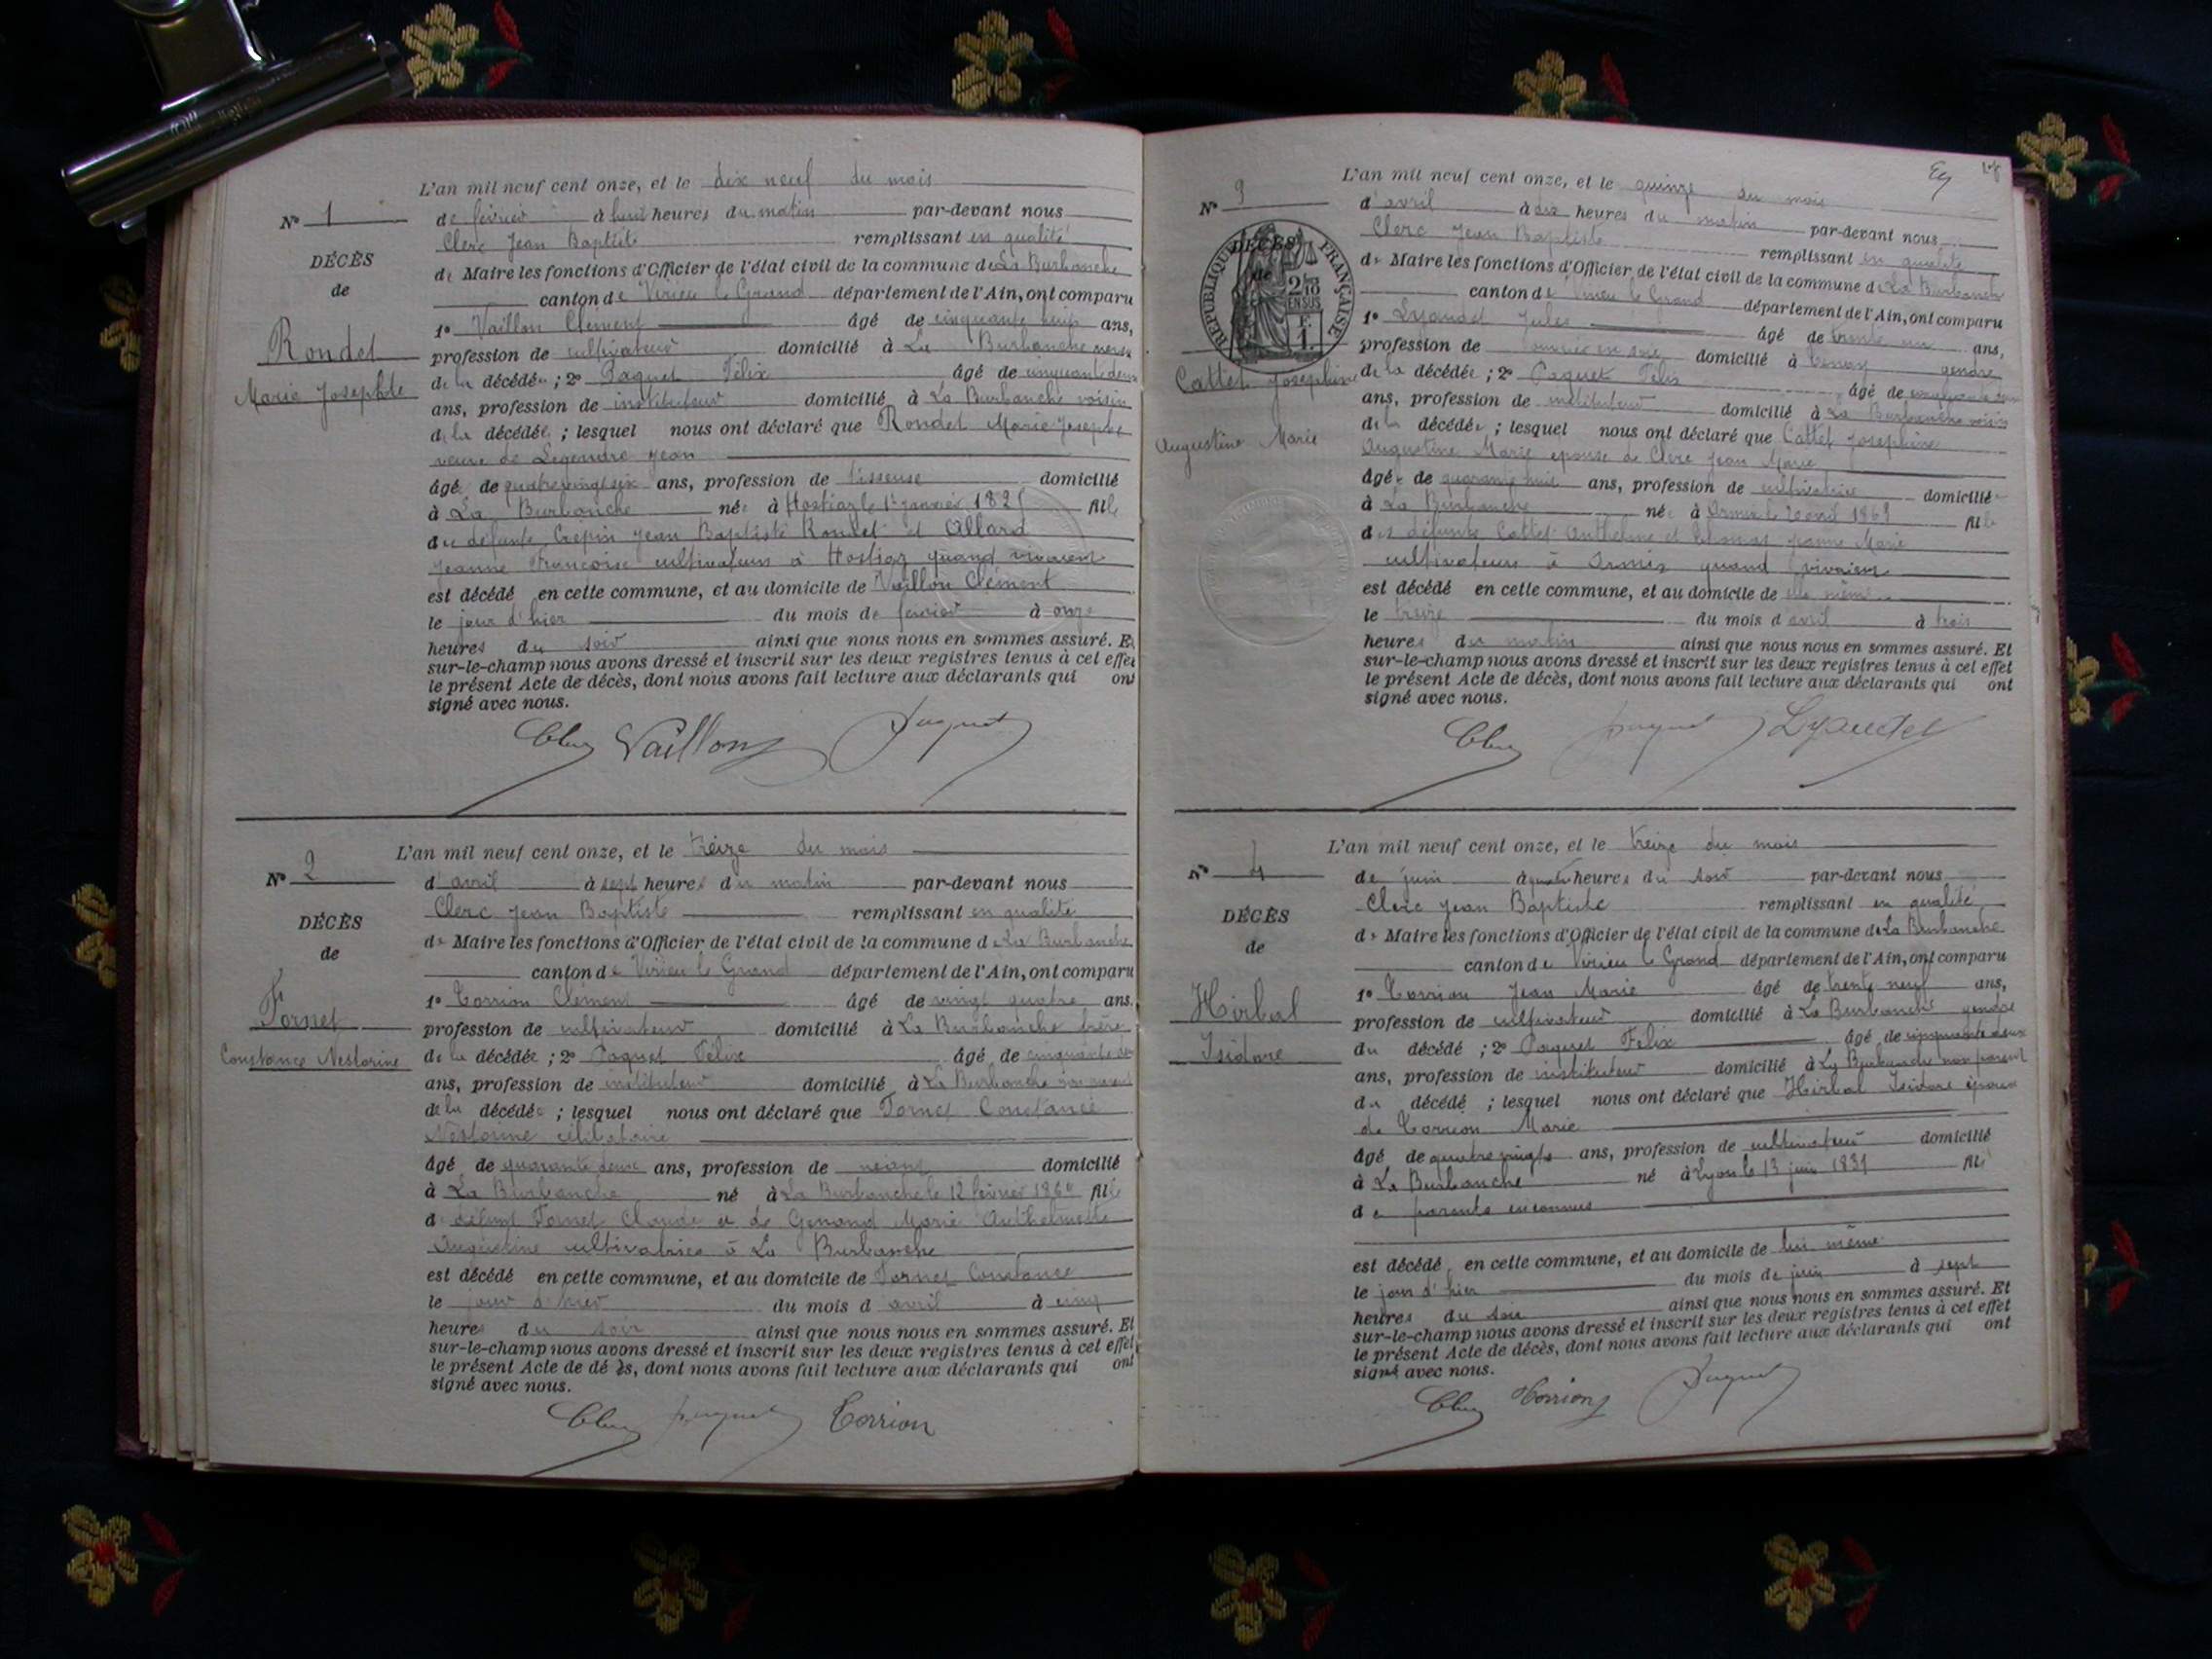 L'an mil neuf cent onze, et le dix neuf du mois
N° 1
de février à huit heures du matin par-devant nous
Clerc Jean Baptiste remplissant en qualité
DÉCÈS
de Maire les fonctions d'Officier de l'état civil de la commune de La Burbanche
de
canton de Virieu le Grand département de l'Ain, ont comparu
1° Vaillon Clément âgé de cinquante neuf ans,
Rondet
profession de cultivateur domicilié à La Burbanche neveu
Marie Josephte
de la décédée ; 2° Paquet Félix âgé de cinquante deux
ans, profession de instituteur domicilié à La Burbanche voisin
de la décédée ; lesquel nous ont déclaré que Rondet Marie Josephe
veuve de Legendre Jean
âgé de quatre vingt six ans, profession de Tisseuse domicilié
à La Burbanche née à Hostiaz le 1er janvier 1825 fille
du défunt Crépin Jean Baptiste Rondet et Allard
Jeanne Françoise cultivateurs à Hostiaz quand vivaient
est décédé en cette commune, et au domicile de Vaillon Clément
le jour d'hier du mois de février à onze
heures du soir ainsi que nous nous en sommes assuré. Et
sur-le-champ nous avons dressé et inscrit sur les deux registres tenus à cet effet
le présent Acte de décès, dont nous avons fait lecture aux déclarants qui ont
signé avec nous.
Clerc Vaillon Paquet
L'an mil neuf cent onze, et le treize du mois
N° 2
d'avril à sept heures du matin par-devant nous
Clerc Jean Baptiste remplissant en qualité
DÉCÈS
de Maire les fonctions d'Officier de l'état civil de la commune de La Burbanche
de
canton de Virieu le Grand département de l'Ain, ont comparu
1° Corrion Clément âgé de vingt quatre ans.
Fornet
profession de cultivateur domicilié à La Burbanche frère
Constance Nestorine
de la décédée ; 2° Paquet Félix âgé de cinquante deux
ans, profession de instituteur domicilié à La Burbanche non parent
de la décédée ; lesquel nous ont déclaré que Fornet Constance
Nestorine célibataire
âgé de quarante deux ans, profession de néant domicilié
à La Burbanche né à La Burbanche le 12 février fille
de défunt Fornet Claude et de Genand Marie Anthelmette
Augustine cultivatrice à La Burbanche
est décédé en cette commune, et au domicile de Fornet Constance
le jour d'hier du mois d avril à cinq
heures du soir ainsi que nous nous en sommes assuré. Et
sur-le-champ nous avons dressé et inscrit sur les deux registres tenus à cet effet
le présent Acte de dé ès, dont nous avons fait lecture aux déclarants qui ont
signé avec nous.
Clerc Paquet Corrion
L'an mil neuf cent onze, et le quinze du mois
N° 3
d'avril à dix heures du matin par-devant nous
Clerc Jean Baptiste remplissant en qualité
DÉCÈS
de
RÉPUBLIQUE FRANÇAISE
2/10 EN SUS
F. 1.
de Maire les fonctions d'Officier de l'état civil de la commune de La Burbanche
canton de Virieu le Grand département de l'Ain, ont comparu
1° Lyaudet Jules âgé de trente un ans,
profession de domicilié à Tenay gendre
Cattet Josephine
de la décédée ; 2° Paquet Félix âgé de cinquante deux
ans, profession de instituteur domicilié à La Burbanche voisin
Augustine Marie
de la décédée ; lesquel nous ont déclaré que Cattet Josephine
Augustine Marie épouse de Clerc Jean Marie
âgé de quarante huit ans, profession de cultivatrice domicilié
à La Burbanche née à le avril fille
des défunts Cattet Anthelme et Jeanne Marie
cultivateurs à quand vivaient
est décédé en cette commune, et au domicile de elle même
le treize du mois d avril à trois
heures du matin ainsi que nous nous en sommes assuré. Et
sur-le-champ nous avons dressé et inscrit sur les deux registres tenus à cet effet
le présent Acte de décès, dont nous avons fait lecture aux déclarants qui ont
signé avec nous.
Clerc Paquet Lyaudet
L'an mil neuf cent onze, et le treize du mois
N° 4
de juin à quatre heures du soir par-devant nous
Clerc Jean Baptiste remplissant en qualité
DÉCÈS
de Maire les fonctions d'Officier de l'état civil de la commune de La Burbanche
de
canton de Virieu le Grand département de l'Ain, ont comparu
1° Corrion Jean Marie âgé de trente neuf ans,
Hirbal
profession de cultivateur domicilié à La Burbanche gendre
Isidore
du décédé ; 2° Paquet Felix âgé de cinquante deux
ans, profession de instituteur domicilié à La Burbanche non parent
du décédé ; lesquel nous ont déclaré que Hirbal Isidore époux
de Corrion Marie
âgé de quatre vingts ans, profession de cultivateur domicilié
à La Burbanche né à Lyon le 13 juin 1831 fils
de parents inconnus
est décédé en cette commune, et au domicile de lui même
le jour d'hier du mois de juin à sept
heures du soir ainsi que nous nous en sommes assuré. Et
sur-le-champ nous avons dressé et inscrit sur les deux registres tenus à cet effet
le présent Acte de décès, dont nous avons fait lecture aux déclarants qui ont
signé avec nous.
Clerc Corrion Paquet